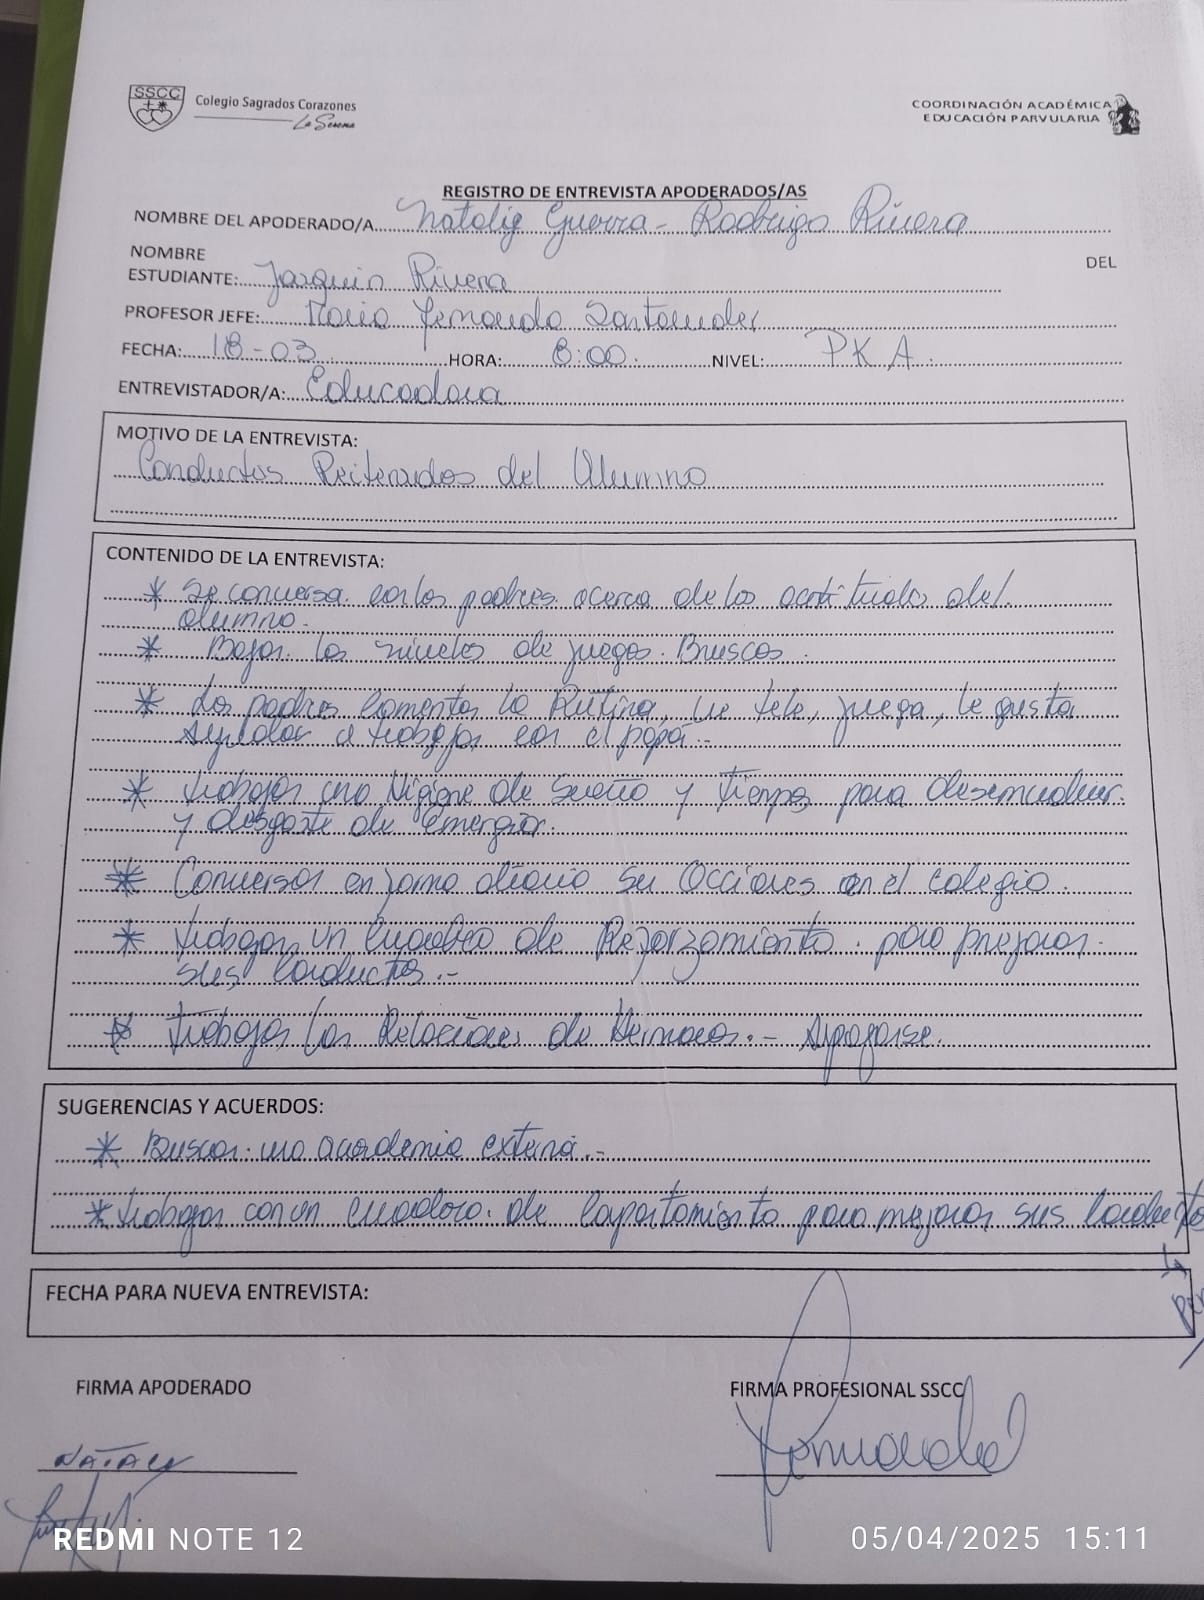 SSCC
Colegio Sagrados Corazones
La Serena
COORDINACIÓN ACADÉMICA
EDUCACIÓN PARVULARIA
REGISTRO DE ENTREVISTA APODERADOS/AS
NOMBRE DEL APODERADO/A Natalig Guerra - Rodrigo Rivera
NOMBRE DEL
ESTUDIANTE: Joaquin Rivera
PROFESOR JEFE: Maria Fernanda Santander
FECHA: 18-03 HORA: 8:00 NIVEL: PKA
ENTREVISTADOR/A: Educadora
MOTIVO DE LA ENTREVISTA:
Conductas Reiteradas del Alumno
CONTENIDO DE LA ENTREVISTA:
* Se conversa con los padres acerca de la actitud del
alumno.
* Bajar los niveles de juegos Bruscos.
* Los padres comentan la Rutina, ve tele, juega, le gusta
Ayudar a trabajar con el papá.-
* Trabajar una Higiene de Sueño y tiempo para
y desgaste de energía.
* Conversar en forma diaria su acciones en el colegio.
* Trabajar un cuadro de Reforzamiento para mejorar
sus conductas.-
* Trabajar las Relaciones de Hermanos.- Apoyarse.
SUGERENCIAS Y ACUERDOS:
* Buscar una academia externa.-
* Trabajar con un de Comportamiento para mejorar sus conductas
FECHA PARA NUEVA ENTREVISTA:
FIRMA APODERADO FIRMA PROFESIONAL SSCC
NATALY
REDMI NOTE 12 05/04/2025 15:11